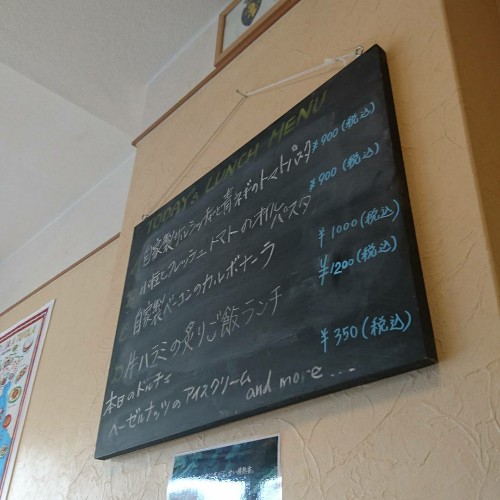 TODAY's LUNCH MENU
自家製サルシッチャと青ネギのトマトパスタ ¥900(税込)
小柱とフレッシュトマトのオイルパスタ ¥900(税込)
自家製ベーコンのカルボナーラ ¥1000(税込)
牛ハラミの炙りご飯ランチ ¥1200(税込)
本日のドルチェ
ヘーゼルナッツのアイスクリーム ¥350(税込)
and more...